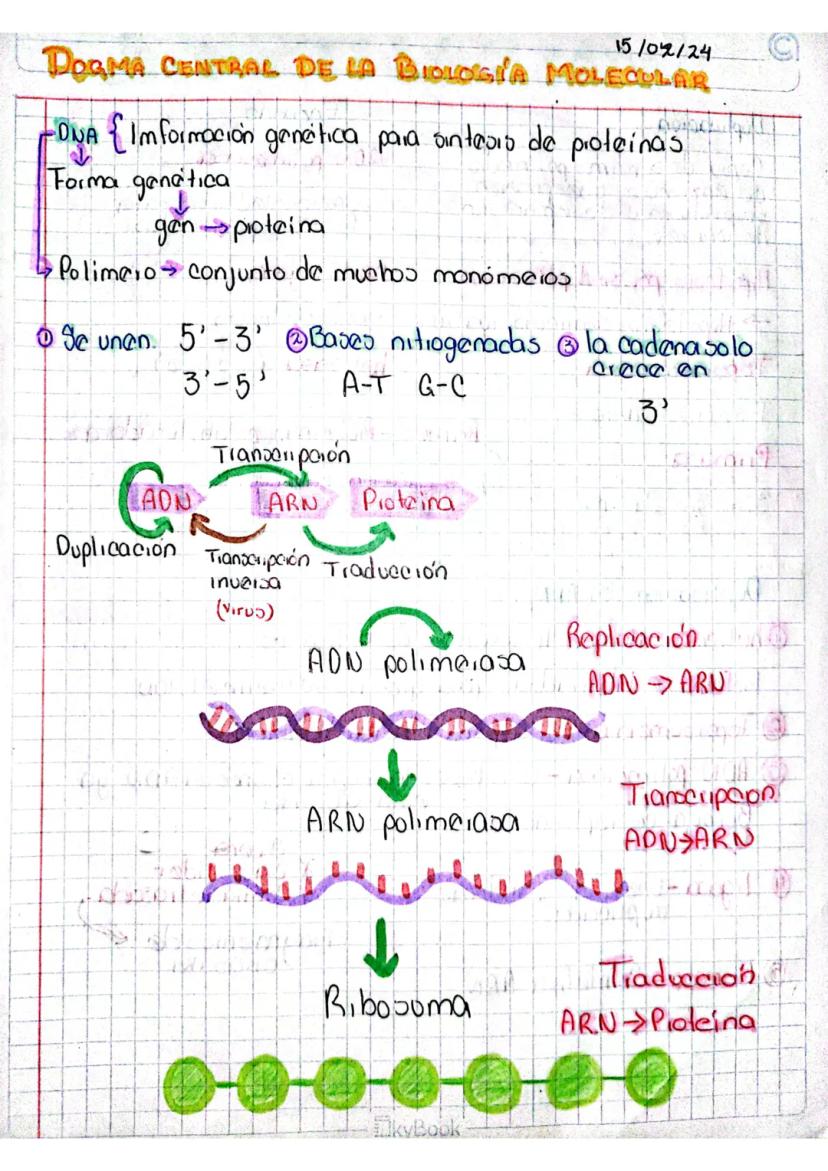 15/02/24
DOGMA CENTRAL DE LA BIOLOGÍA MOLECULAR
DNA { Imformación genética para sintesis de proteínas
Forma genética
gen → proteina
Polimero → conjunto de muchos monómeros
① Se unen 5' - 3' ② Bases nitrogenadas ③ la cadena solo
crece en
3' - 5' A-T G-C
3'
Transcripción
ADN ARN Proteina
Duplicación Transcripción Traducción
inversa
(virus)
Replicación
ADN polimerasa
ADN → ARN
Transcripcion
ARN polimerasa
ADN → ARN
Traducción
Ribosoma
ARN → Proteína